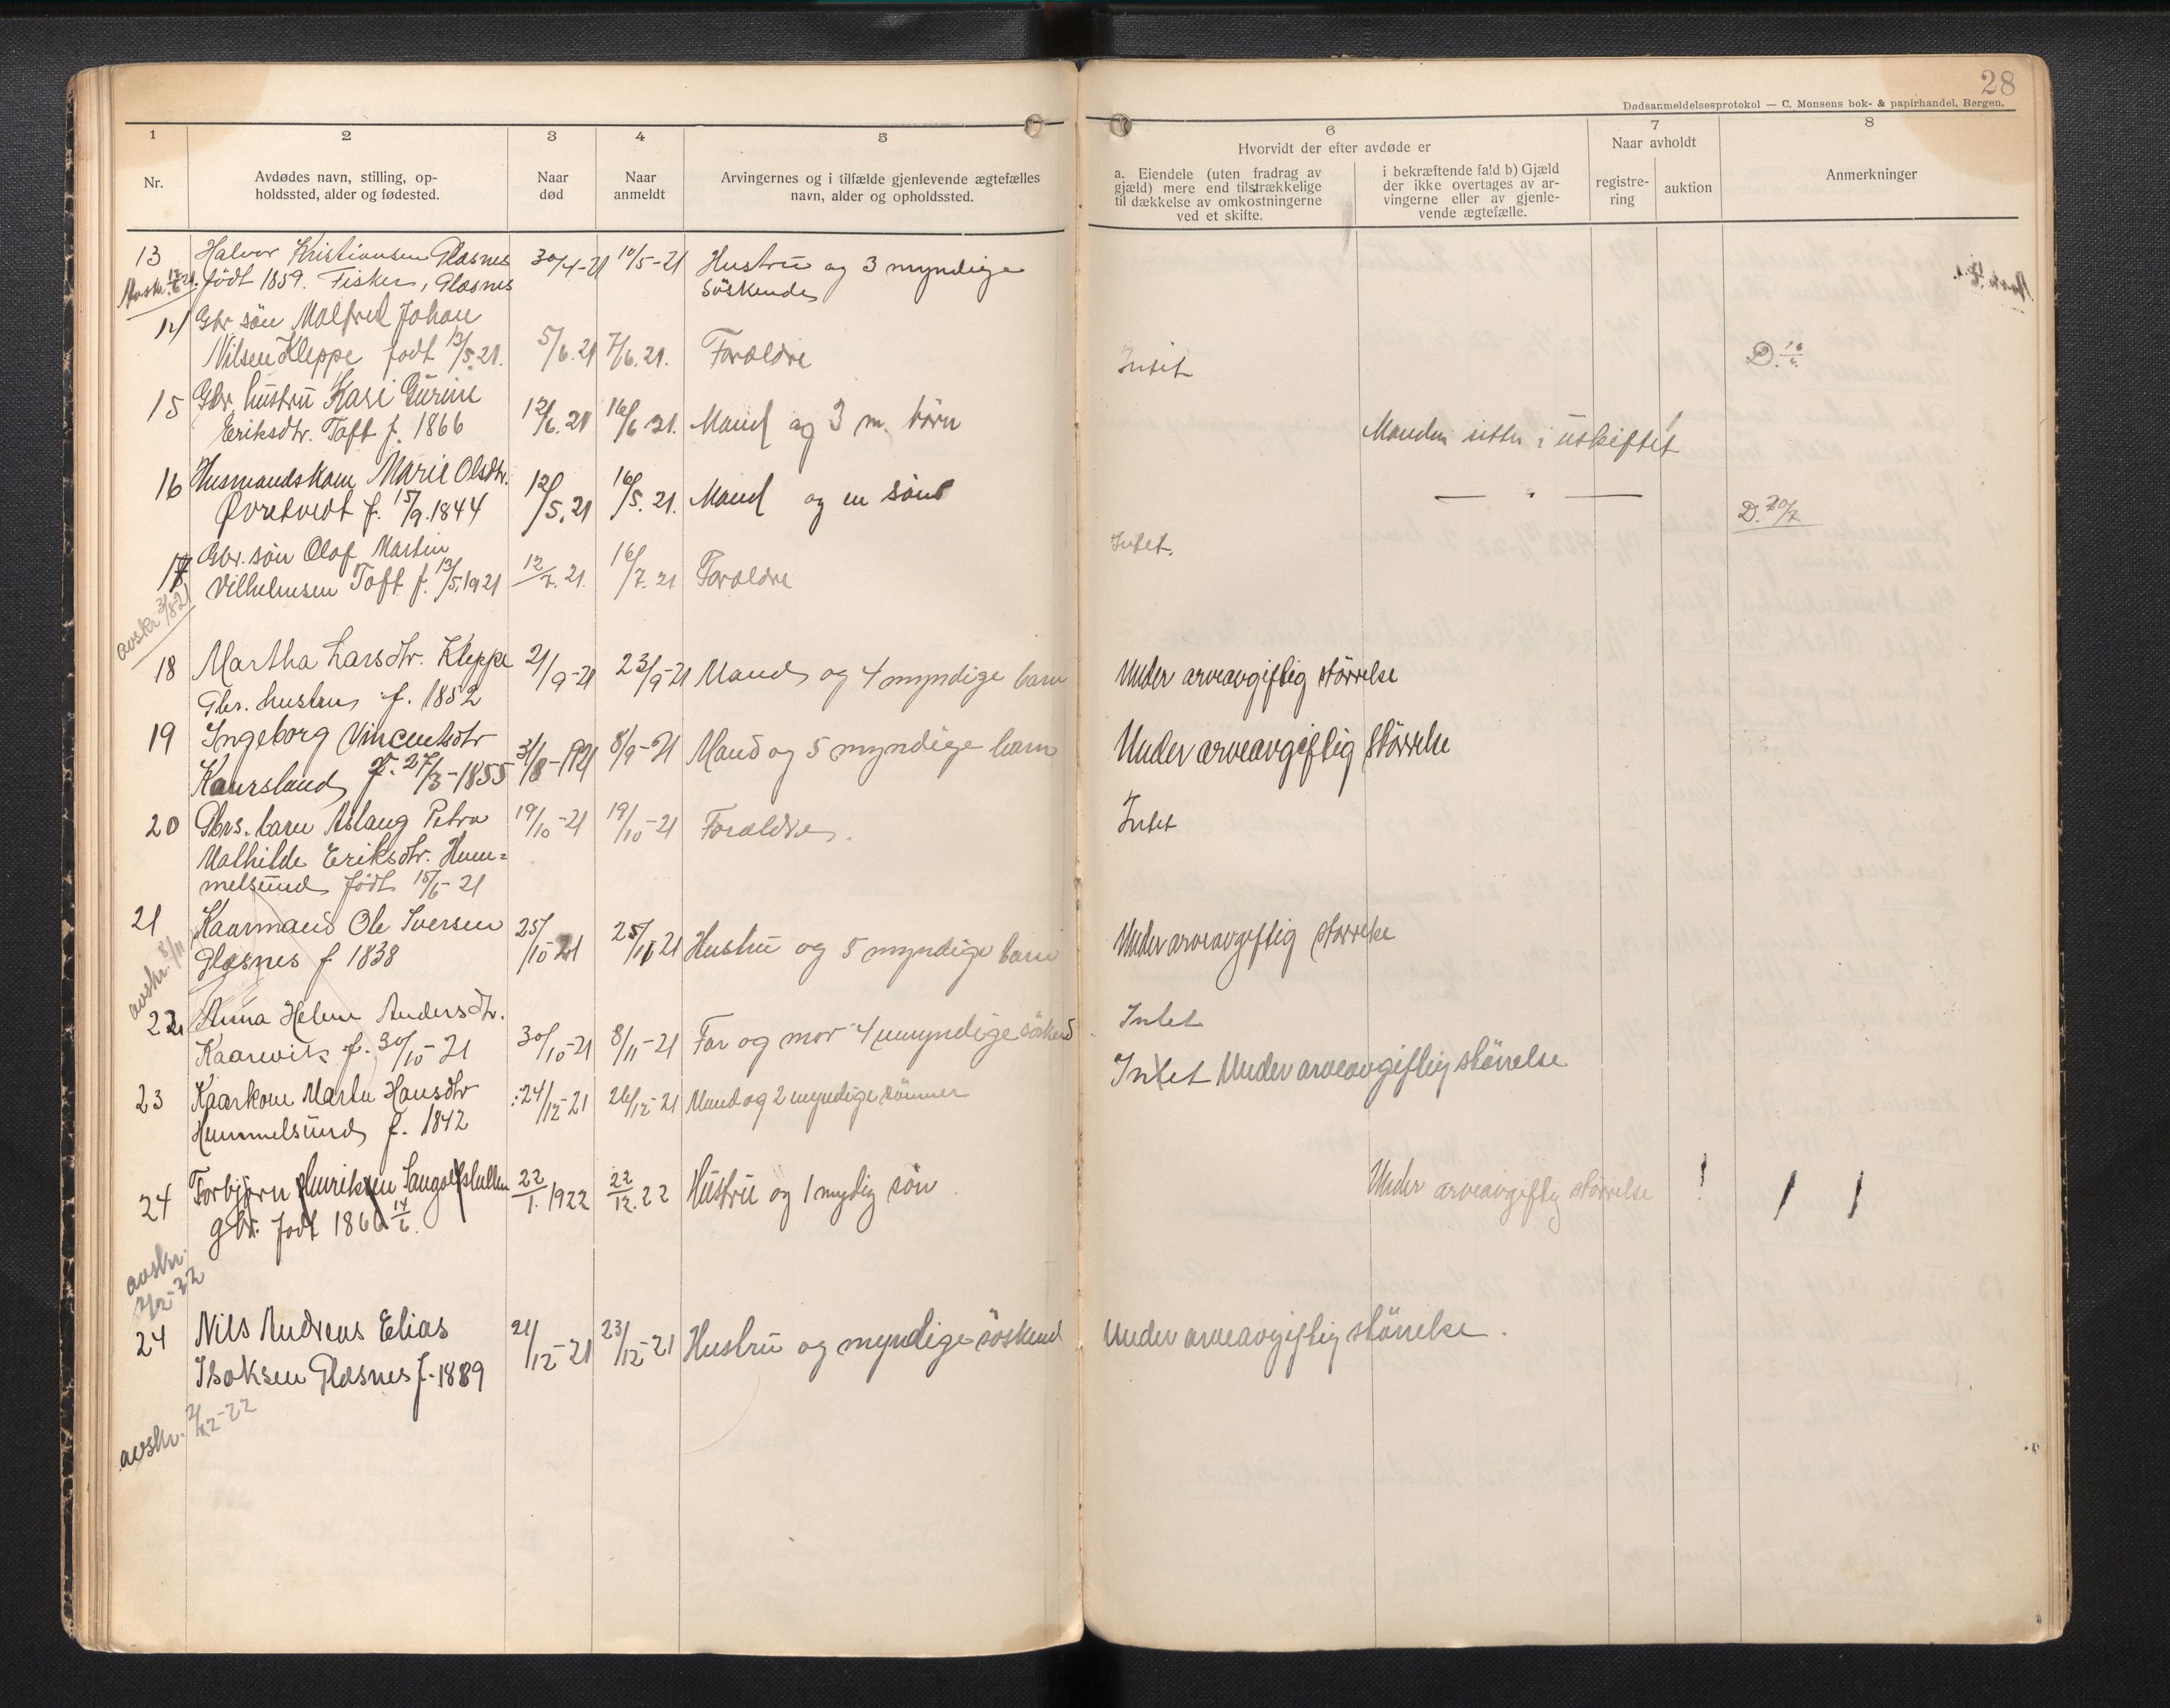 28
Dødsanmeldelsesprotokol — C. Monsens bok- & papirhandel, Bergen.
1 2 3 4 5 6 7 8
Nr.
Avdødes navn, stilling, op-
holdssted, alder og fødested.
Naar
død
Naar
anmeldt
Arvingernes og i tilfælde gjenlevende ægtefælles
navn, alder og opholdssted.
Hvorvidt der efter avdøde er
a. Eiendele (uten fradrag av
gjæld) mere end tilstrækkelige
til dækkelse av omkostningerne
ved et skifte.
i bekræftende fald b) Gjæld
der ikke overtages av ar-
vingerne eller av gjenle-
vende ægtefælle.
Naar avholdt
registre-
ring
auktion
Anmerkninger
13 Halvor Kristiansen Glæsnes 30/4-21 10/5-21 Hustru og 3 myndige
født 1859. Fisker, Glæsnes søskende
14 Gbr søn Malfred Johan
Nilsen Kleppe født 13/5.21. 5/6.21 7/6.21. Forældre Intet D. 16/6.
15 Gbr. hustru Kari Gurine
Eriksdtr. Toft f. 1866 12/6.21 16/6 21. Mand og 3 m. børn Manden sitter i uskiftet
16 Husmandskone Marie Olsdtr.
Øvretvedt f. 15/9.1844 12/5.21 16/5.21. Mand og en søn — " — D. 20/7
17 Gbr. søn Olaf Martin
Vilhelmsen Toft f. 13/5.1921 12/7.21. 16/7.21 Forældre Intet.
avskr 3/8 21
18 Martha Larsdtr. Kleppe 21/9-21 23/9-21 Mand og 4 myndige barn Under arveavgiftig størrelse
Gbr. hustru f. 1852
19 Ingeborg Vincentsdtr
Kaursland f. 27/3-1855 31/8-1921 8/9-21 Mand og 5 myndige barn Under arveavgiftig størrelse
20 Gbrs. barn Aslaug Petra 19/10-21 19/10-21 Forældre. Intet
Mathilde Eriksdtr. Hum=
melsund født 15/6-21
21 Kaarmand Ole Iversen
Glæsnes f 1838 25/10 21 25/10 21 Hustru og 5 myndige barn Under arveavgiftig størrelse
avskr 8/11
22 Anna Helene Andersdtr.
Kaarevik f. 30/10-21 30/10-21 8/11-21 Far og mor 4 umyndige søskend Intet
23 Kaarkone Marta Hansdtr
Hummelsund f. 1842 24/12-21 26/12-21 Mand og 2 myndige sønner Intet Under arveavgiftig størrelse
24 Torbjørn Henriksen
gbr. født 1866 14/6. 22/1.1922 22/12.22 Hustru og 1 mydig søn. Under arveavgiftig størrelse
avskr.
2/12-22
24 Nils Andreas Elias
Isaksen Glæsnes f. 1889 21/12-21 23/12-21 Hustru og myndige søskend Under arveavgiftig størrelse.
avskr. 2/12-22